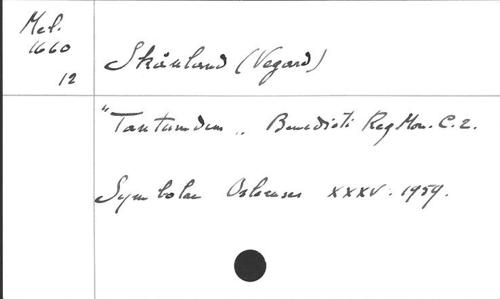 Mel.
1660
12
Skånland (Vegard)
"Tantundem„ Benedicti Reg Mon. C. 2.
Symbolae Osloenses XXXV. 1959.